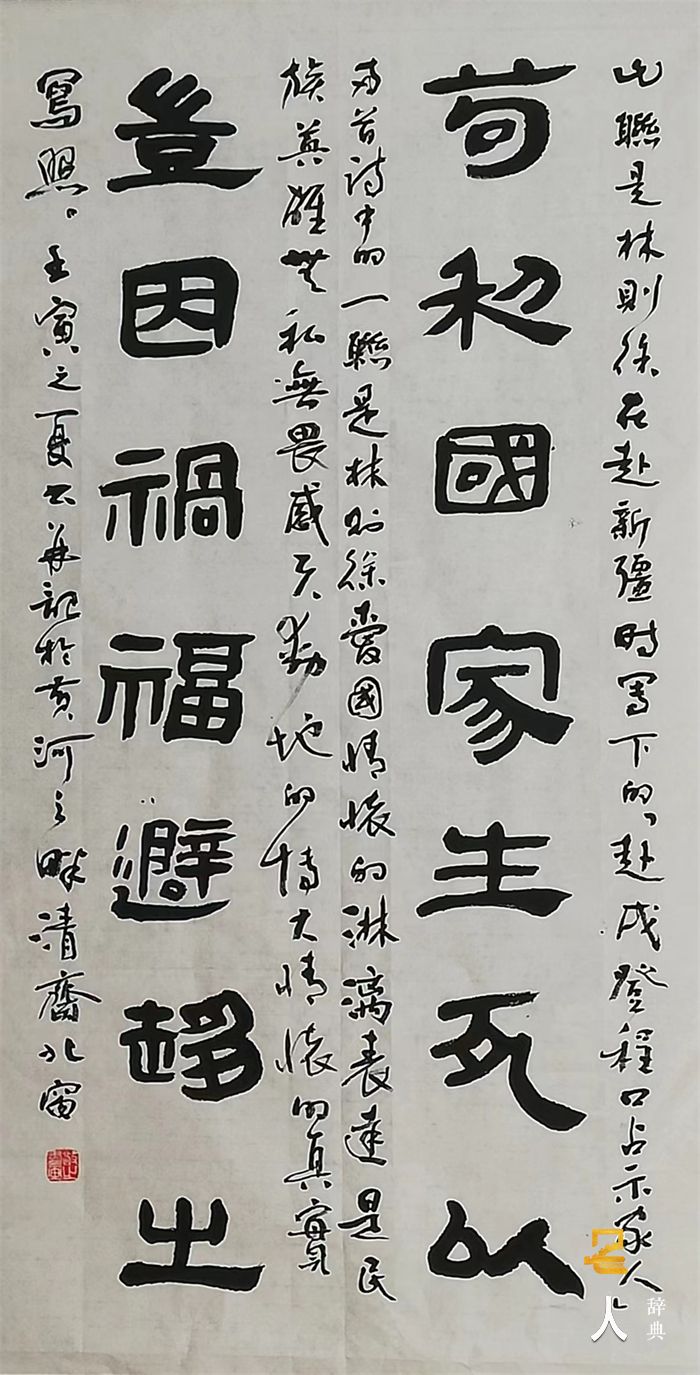 此聯是林則徐在赴新疆時写下的「赴戍登程口占示家人」
苟利國家生死以
两首诗中的一聯是林则徐愛國情懷的淋漓表達是民
族英雄無私無畏感天動地的博大情懷的真實
豈因禍福避趨之
寫照、壬寅之夏书并記於黄河之畔清齋北窗
人
辞典